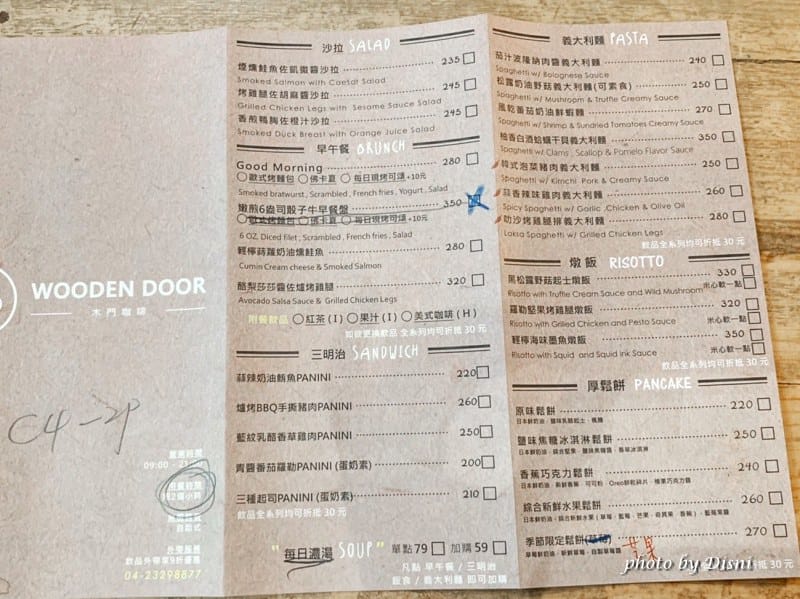 WOODEN DOOR
木門咖啡
C4-2P
營業時間
09:00 - 21:00
用餐時間
限2個小時
服務費
自助式
飲品外帶享9折優惠
04-23298877
沙拉 SALAD
煙燻鮭魚佐凱撒醬沙拉 235
Smoked Salmon with Caesar Salad
烤雞腿佐胡麻醬沙拉 245
Grilled Chicken Legs with Sesame Sauce Salad
香煎鴨胸佐橙汁沙拉 245
Smoked Duck Breast with Orange Juice Salad
早午餐 BRUNCH
Good Morning 280
歐式烤麵包 佛卡夏 每日現烤可頌+10元
Smoked bratwurst , Scrambled , French fries , Yogurt , Salad
嫩煎6盎司骰子牛早餐盤 350
歐式烤麵包 佛卡夏 每日現烤可頌+10元
6 OZ. Diced filet , Scrambled , French fries , Salad
輕檸蒔蘿奶油燻鮭魚 280
Cumin Cream cheese & Smoked Salmon
酪梨莎莎醬佐爐烤雞腿 320
Avocado Salsa Sauce & Grilled Chicken Legs
附餐飲品 紅茶 ( I ) 果汁 ( I ) 美式咖啡 ( H )
如做更換飲品 全系列均可折抵 30 元
三明治 SANDWICH
蒜辣奶油鮪魚PANINI 220
爐烤BBQ手撕豬肉PANINI 260
藍紋乳酪香草雞肉PANINI 250
青醬番茄羅勒PANINI (蛋奶素) 200
三種起司PANINI (蛋奶素) 210
飲品全系列均可折抵 30 元
"每日濃湯 SOUP" 單點 79 加購 59
凡點 早午餐 / 三明治
飯食 / 義大利麵 即可加購
義大利麵 PASTA
茄汁波隆納肉醬義大利麵 240
Spaghetti w/ Bolognese Sauce
松露奶油野菇義大利麵(可素食) 250
Spaghetti w/ Mushroom & Truffle Creamy Sauce
風乾番茄奶油鮮蝦麵 270
Spaghetti w/ Shrimp & Sundried Tomatoes Creamy Sauce
柚香白酒蛤蠣干貝義大利麵 350
Spaghetti w/ Clams , Scallop & Pomelo Flavor Sauce
韓式泡菜豬肉義大利麵 250
Spaghetti w/ Kimchi Pork & Creamy Sauce
蒜香辣味雞肉義大利麵 260
Spicy Spaghetti w/ Garlic , Chicken & Olive Oil
叻沙烤雞腿排義大利麵 280
Laksa Spaghetti w/ Grilled Chicken Legs
飲品全系列均可折抵 30 元
燉飯 RISOTTO
黑松露野菇起士燉飯 330
Risotto with Truffle Cream Sauce and Wild Mushroom 米心軟一點
羅勒堅果烤雞腿燉飯 320
Risotto with Grilled Chicken and Pesto Sauce 米心軟一點
輕檸海味墨魚燉飯 350
Risotto with Squid and Squid ink Sauce 米心軟一點
飲品全系列均可折抵 30 元
厚鬆餅 PANCAKE
原味鬆餅 220
鹽味焦糖冰淇淋鬆餅 250
香蕉巧克力鬆餅 240
綜合新鮮水果鬆餅 260
季節限定鬆餅 270
抵 30 元
photo by Disni